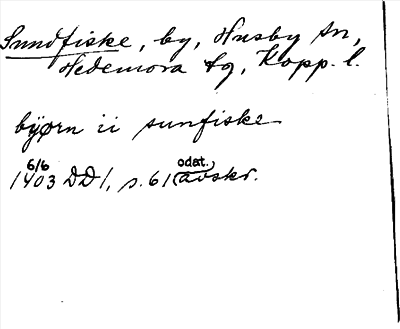 Sundfiske, by, Husby sn,
Hedemora tg, Kopp. l.
byørn ii sunfiske
6/6
1403 DD1, s. 61 (odat. avskr.